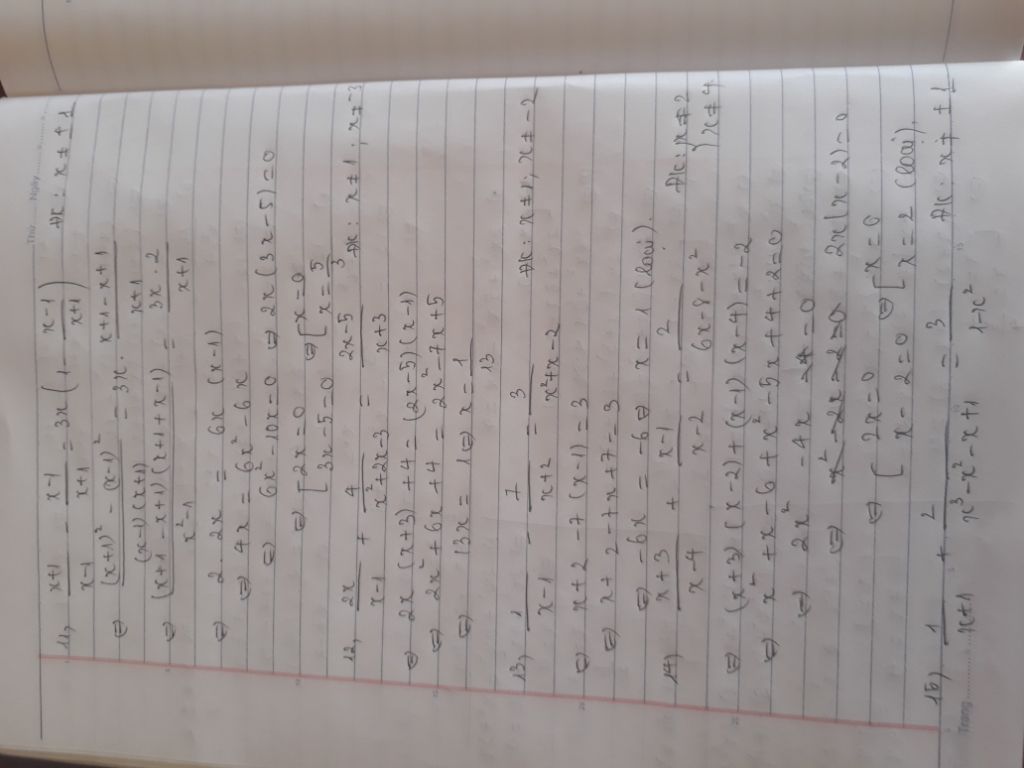 Thứ ......... Ngày .........
11, (x+1)/(x-1) - (x-1)/(x+1) = 3x(1 - (x-1)/(x+1)) ĐK: x ≠ ±1
⇔ ((x+1)² - (x-1)²)/((x-1)(x+1)) = 3x. (x+1-x+1)/(x+1)
⇔ ((x+1-x+1)(x+1+x-1))/(x²-1) = (3x.2)/(x+1)
⇔ 2 2x = 6x (x-1)
⇔ 4x = 6x² - 6x
⇔ 6x² - 10x = 0 ⇔ 2x(3x-5) = 0
⇔ [ 2x = 0 ⇔ [ x = 0
[ 3x-5 = 0 [ x = 5/3
12, 2x/(x-1) + 4/(x²+2x-3) = (2x-5)/(x+3) ĐK: x ≠ 1; x ≠ -3
⇔ 2x(x+3) + 4 = (2x-5)(x-1)
⇔ 2x² + 6x + 4 = 2x² - 7x + 5
⇔ 13x = 1 ⇔ x = 1/13
13, 1/(x-1) - 7/(x+2) = 3/(x²+x-2) ĐK: x ≠ 1; x ≠ -2
⇔ x+2 - 7(x-1) = 3
⇔ x + 2 - 7x + 7 = 3
⇔ -6x = -6 ⇔ x = 1 (loại).
14, (x+3)/(x-4) + (x-1)/(x-2) = 2/(6x-8-x²) ĐK: x ≠ 2; x ≠ 4
⇔ (x+3)(x-2) + (x-1)(x-4) = -2
⇔ x² + x - 6 + x² - 5x + 4 + 2 = 0
⇔ 2x² - 4x = 0
⇔ 2x(x-2) = 0
⇔ [ 2x = 0 ⇔ [ x = 0
[ x - 2 = 0 [ x = 2 (loại).
15, 1/(x+1) + 2/(x³-x²-x+1) = 3/(1-x²) ĐK: x ≠ ±1
Trang .........